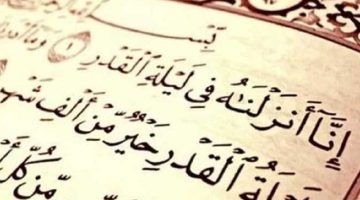 بِسْـ
إِنَّآ أَنزَلْنَٰهُ فِى لَيْلَةِ ٱلْقَدْرِ ١ وَمَآ
ٱلْقَدْرِ خَيْرٌ مِّنْ أَلْفِ شَهْرٍ
مِّن كُلِّ